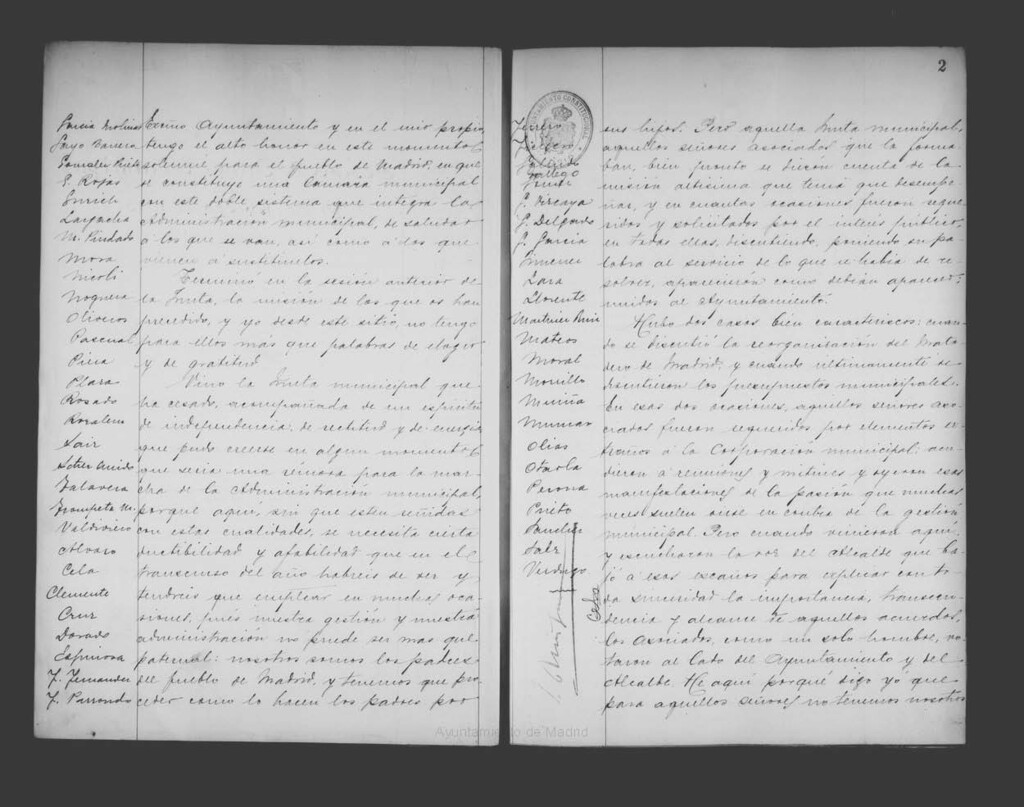 García Molinas
Excmo Ayuntamiento y en el mío propio
tengo el alto honor en este momento
solemne para el pueblo de Madrid, en que
se constituye una Cámara municipal
con este doble sistema que integra la
Administración municipal, de saludar
a los que se van, así como a los que
vienen a sustituirlos.
Terminó en la sesión anterior de
la Junta, la misión de los que os han
precedido, y yo desde este sitio, no tengo
para ellos más que palabras de elogio
y de gratitud.
Vino la Junta municipal que
ha cesado, acompañada de un espíritu
de independencia, de rectitud y de energía
que pudo creerse en algún momento
que sería una rémora para la mar-
cha de la Administración municipal,
porque aquí, sin que estén reñidas
con estas cualidades, se necesita cierta
ductibilidad y afabilidad que en el
transcurso del año habréis de ver y
tendréis que emplear en muchas oca-
siones, pues nuestra gestión y nuestra
administración no puede ser mas que
paternal: nosotros somos los padres
del pueblo de Madrid, y tenemos que pro-
ceder como lo hacen los padres por
G. Rojas
Larrodia
M. Pindado
Mora
Nicoli
Noguera
Oliveros
Pascual
Pina
Plaza
Rosado
Rosalem
Sáiz
Talavera
Trompeta M.
Valdivieso
Alvaro
Cela
Clemente
Cruz
Dorado
Espinosa
F. Fernandez
F. Parrondo
2
AYUNTAMIENTO CONSTITUCIONAL
sus hijos. Pero aquella Junta municipal,
aquellos señores asociados que la forma-
ban, bien pronto se dieron cuenta de la
misión altísima que tenía que desempe-
ñar, y en cuantas ocasiones fueron reque-
ridos y solicitados por el interés público,
en todas ellas, discutiendo, poniendo su pa-
labra al servicio de lo que se había de re-
solver, aparecieron como debían aparecer:
unidos al Ayuntamiento.
Hubo dos casos bien característicos: cuan-
do se discutió la reorganización del Mata-
dero de Madrid, y cuando últimamente se
discutieron los presupuestos municipales.
En esas dos ocasiones, aquellos señores aso-
ciados fueron requeridos por elementos ex-
traños a la Corporación municipal; acu-
dieron a reuniones y mítines y oyeron esas
manifestaciones de la pasión que muchas
veces suelen oirse en contra de la gestión
municipal. Pero cuando vinieron aquí,
y escucharon la voz del Alcalde que ba-
jó a esos escaños para explicar con to-
da sinceridad la importancia, transcen-
dencia y alcance de aquellos acuerdos,
los Asociados, como un solo hombre, vo-
taron al lado del Ayuntamiento y del
Alcalde. He aquí porqué digo yo que
para aquellos señores no tenemos nosotros
Gallego
G. Vizcaya
G. Delgado
G. García
Jimenez
Lara
Llorente
Martínez Ruiz
Mateos
Moral
Morillo
Muniña
Munar
Olías
Otaola
Perona
Prieto
Sanchez
Saiz
Verdugo
Ayuntamiento de Madrid